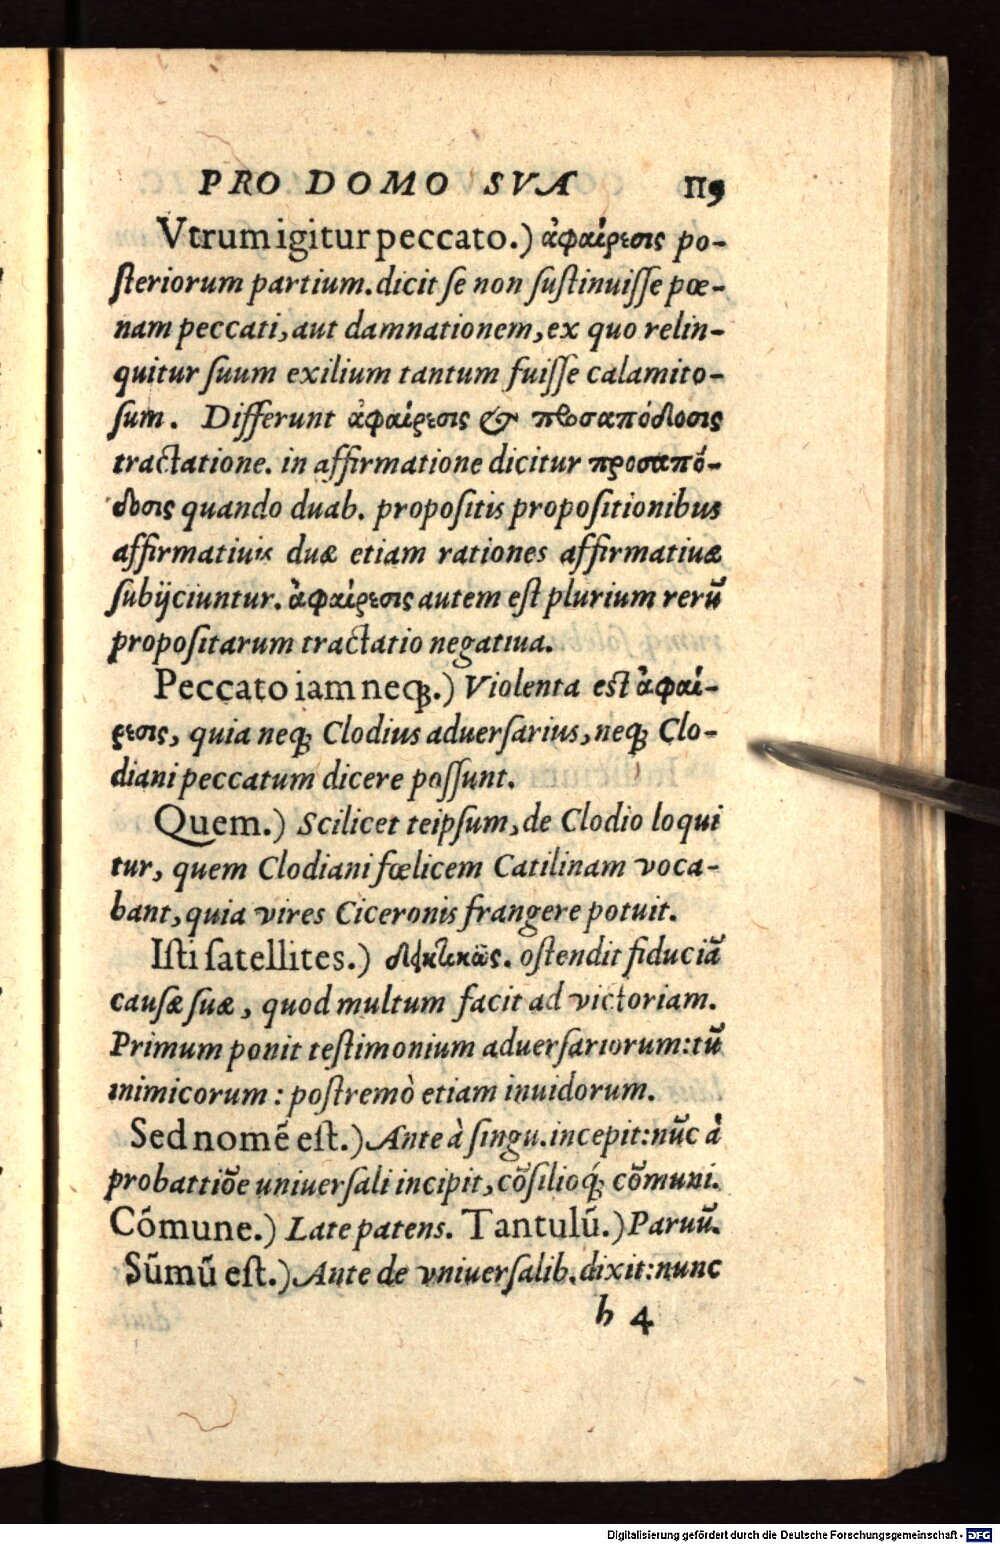 PRO DOMO SVA 119
Vtrum igitur peccato.) ἀφαίρεσις po-
ſteriorum partium. dicit ſe non ſuſtinuiſſe pœ-
nam peccati, aut damnationem, ex quo relin-
quitur ſuum exilium tantum fuiſſe calamito-
ſum. Differunt ἀφαίρεσις & προσαπόδοσις
tractatione. in affirmatione dicitur προσαπό-
δοσις quando duab. propoſitis propoſitionibus
affirmatiuis duæ etiam rationes affirmatiuæ
ſubijciuntur. ἀφαίρεσις autem eſt plurium rerū
propoſitarum tractatio negatiua.
Peccato iam neq;.) Violenta eſt ἀφαί-
ρεσις, quia neq; Clodius aduerſarius, neq; Clo-
diani peccatum dicere poſſunt.
Quem.) Scilicet teipſum, de Clodio loqui
tur, quem Clodiani fœlicem Catilinam voca-
bant, quia vires Ciceronis frangere potuit.
Iſti ſatellites.) δεικτικῶς. oſtendit fiduciā
cauſæ ſuæ, quod multum facit ad victoriam.
Primum ponit teſtimonium aduerſariorum: tū
inimicorum: poſtremò etiam inuidorum.
Sed nomē eſt.) Ante à ſingu. incepit: nūc à
probattiōe uniuerſali incipit, cōſilioq́; cōmuni.
Cōmune.) Late patens. Tantulū.) Paruū.
Sūmū eſt.) Ante de vniuerſalib. dixit: nunc
h 4
Digitalisierung gefördert durch die Deutsche Forschungsgemeinschaft - DFG